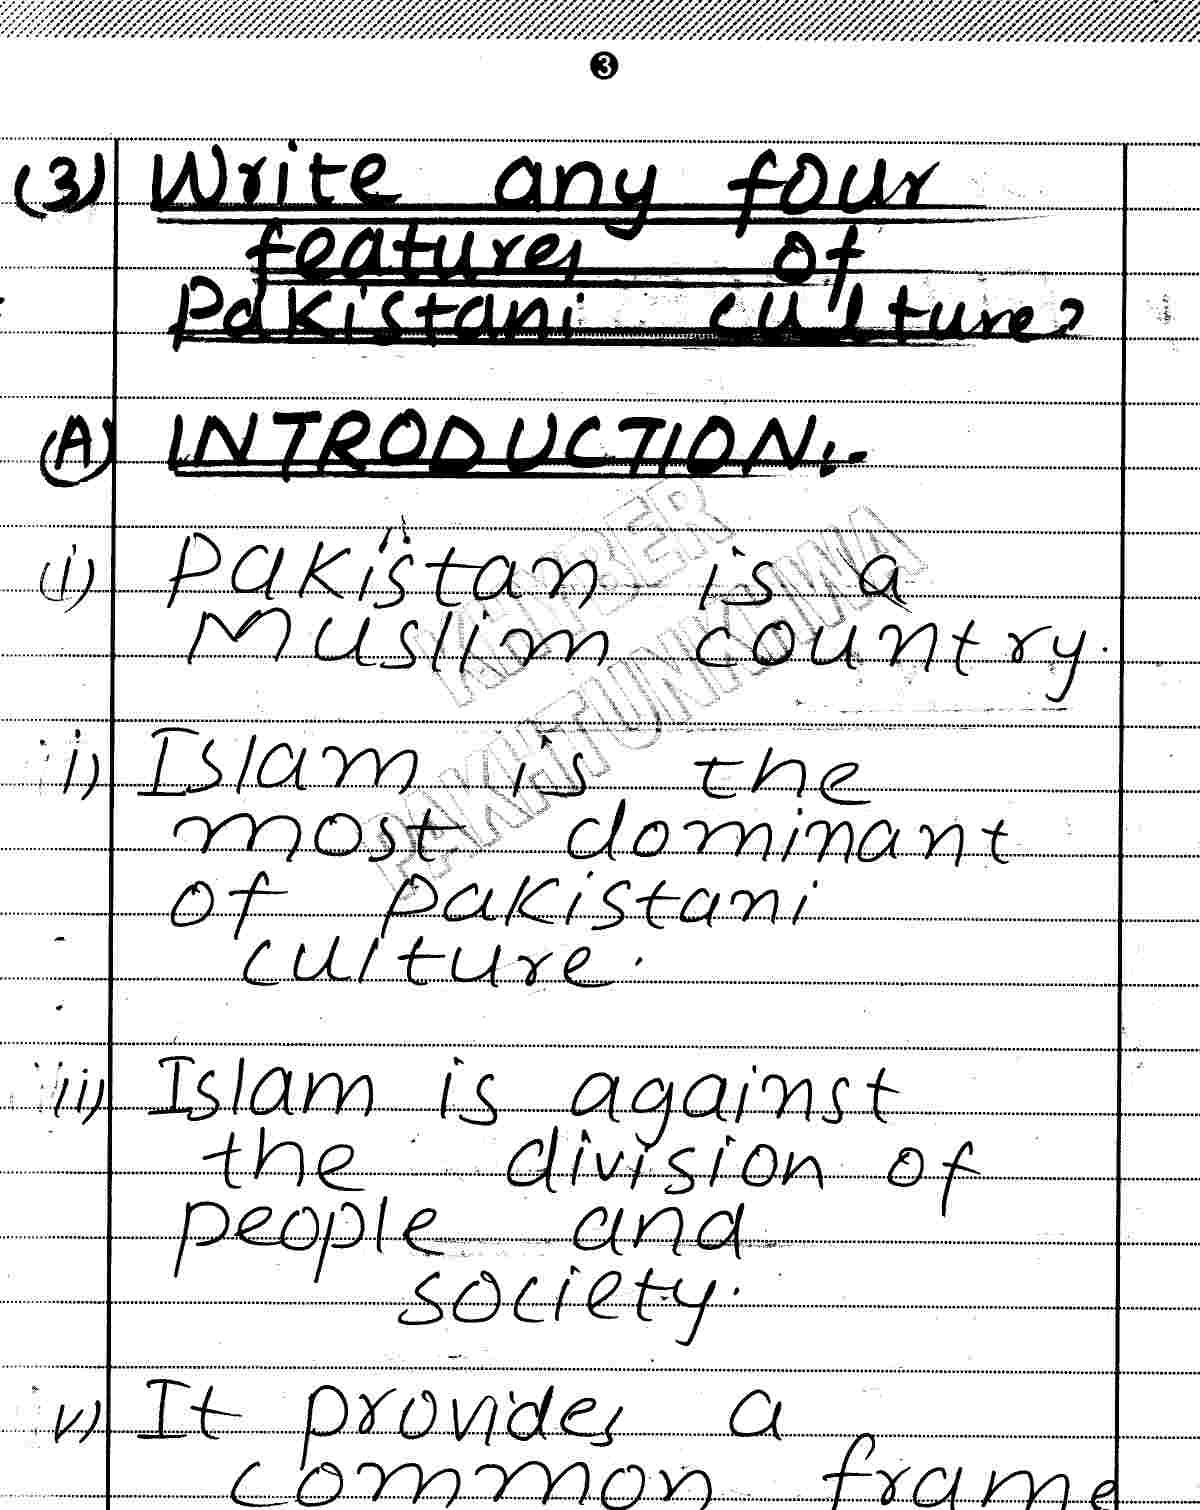 3
(3) Write any four
features of
Pakistani culture?
(A) INTRODUCTION:-
(i) Pakistan is a
Muslim country.
i) Islam is the
most dominant
of Pakistani
culture.
ii) Islam is against
the division of
people and
society.
v) It provides a
common frame
KHYBER
PAKHTUNKHWA